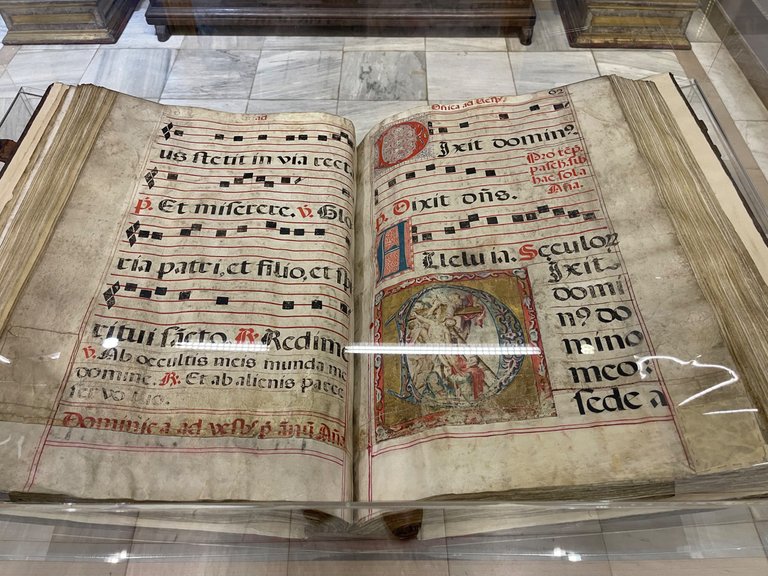 us stetit in via rect
℟. Et miserere. ℣. Glo
ria patri, et filio, et sp̄
ritui sācto. ℟. Redime
℣. Ab occultis meis munda me
domine. ℟. Et ab alienis parce
servo tuo.
Dominica ad vesp̄.
Dn̄ica ad Vesp̄. 62
Dixit domin9
Pro tēp.
pasch. sub
hac sola
Añ̄a.
p̄. Dixit dñs.
Alleluia. Seculoꝝ
Dixit
domi
n9 do
mino
meo:
sede a